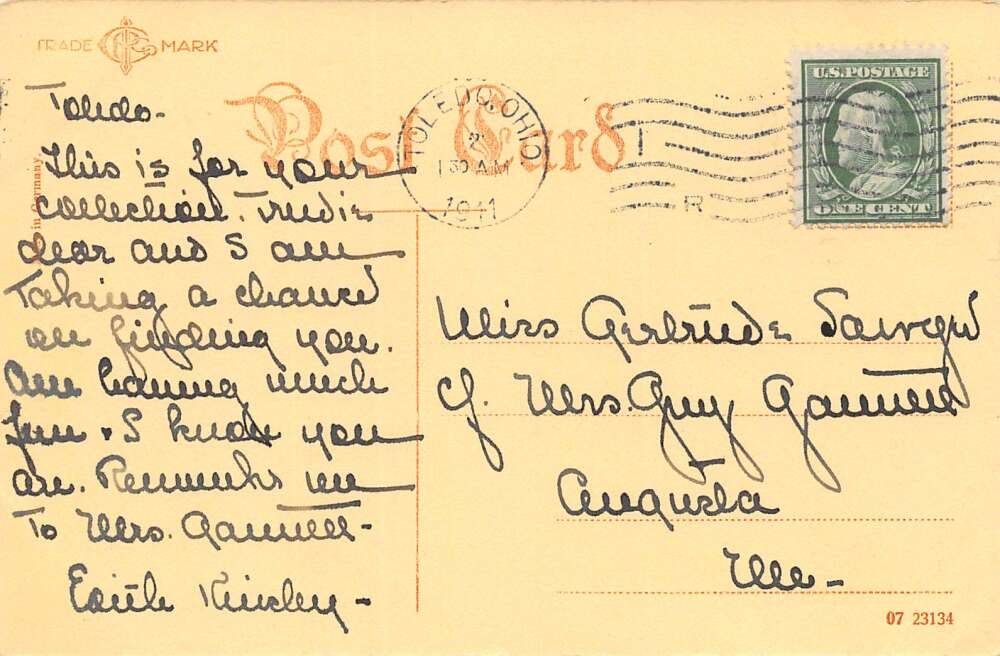 TRADE MARK
Post Card
TOLEDO, OHIO
2
130 AM
1911
R
U.S. POSTAGE
ONE CENT
Toledo-
This is for your
collection. Trudie
dear and I am
Taking a chance
on finding you.
Am having much
fun & I know you
are. Remember me
To Mrs. Gannett-
Edith
Miss Gertrude Sawyer
c/. Mrs. Guy Gannett
Augusta
Me-
in Germany
07 23134